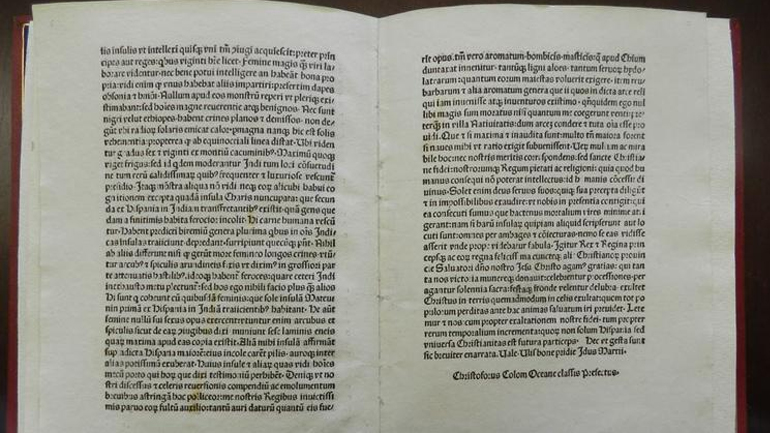 tis insulis vt intellexi quisq; vni tm̄ ꝯiugi acquiescit: preter prin
cipes aut reges: qbus viginti hr̄e licet. Femine magis q̃ viri la
borare videntur: nec bene potui intelligere an habeāt bona pro
pria: vidi enim ꝙ vnus habebat aliis impartiri: presertim dapes
obsonia et hm̄oi. Nullum apud eos monstrū reperi vt pleriq; exi
stimabant: sed hoīes magne reuerentie atq; benignos. Nec sunt
nigri velut ethiopes: habent crines planos et demissos. non de-
gūt vbi radioꝝ solaris emicat calor.
rehementia: propterea ꝙ ab equinoctiali linea distat. Vbi viden
tur gradus sex et viginti ex montiū cacuminibꝰ. Maximū quoq;
viget frigus: sed id quidem moderantur Indi tum loci cōsuetudi
ne tum rerū calidissimaꝝ quibꝰ frequenter et luxuriose vescunt̃
presidio. Itaq; mōstra aliqua nō vidi neq; eoꝝ alicubi habui co
gnitionem excepta quadā insula Charis nuncupata: que secun
da ex Hispania in Indiā transfretantibꝰ existit. quā gens que
dam a finitimis habita ferocior incolit. Hi carne humana vescū
tur. Habent predicti biremiū genera plurima qbus in oīs Indi
cas insulas traiiciunt. depredant. surripiunt quecūq; pn̄t. Nihil
ab aliis differunt nisi ꝙ gerūt more femineo longos crines. vtūt̃
tur arcubꝰ et spiculis arundineis fixis vt diximꝰ in grossiori par
te attenuatis hastilibꝰ. ideoq; habent̃ feroces: quare ceteri Indi
inexhausto metu plectunt̃: sed hos ego nihili facio plus q̃ alios
Hi sunt q coheunt cū quibusdā feminis: que sole insulā Mateu-
nin prima ex Hispania in Indiā traiicientibꝰ habitant. He aut
femine nullū sui sexus opus exercent: vtuntur enim arcubus et
spiculis sicut de eaꝝ ꝯiugibus dixi. muniunt sese laminis eneis
quaꝝ maxima apud eas copia existit. Aliā mihi insulā affirmāt
supradicta Hispana maiorē: eius incole carēt pilis. auroq; inter
alias potissimū exuberat. Huius insule et aliaꝝ quas vidi hoīes
mecū porto qui hoꝝ que dixi testimoniū perhibēt. Deniq; vt no
stri discessus et celeris reuersionis compendiū ac emolumentum
breuibus astringā. hoc polliceor: me nostris Regibus inuictissi
mis paruo eoꝝ fultū auxilio: tantū auri daturū quantū eis fue/
rit opus. tm̄ vero aromatum. bombicis. masticis: q̄ apud Chium
duntaxat inuenitur. tantūq; ligni aloes. tantum seruoꝝ hydo-
latrarum: quantum eorum maiestas voluerit exigere. item reu-
barbarum et alia aromatum genera que ii quos in dicta arce reli
qui iam inuenisse atq; inuenturos existimo. qn̄quidem ego nul
libi magis sum moratus nisi quantum me coegerunt venti: pre
terq̃ in villa Natiuitatis: dum arcē condere et tuta oīa esse pro
uidi. Que et si maxima et inaudita sunt: multo tn̄ maiora forent
si naues mihi vt ratio exigit subuenissent. Veꝝ multum ac mira
bile hoc: nec nostris meritis correspondens. sed sancte Christia/
ne fidei: nostrorumq; Regum pietati ac religioni: quia quod hu
manus consequi non poterat intellectus: id humanis cōcessit di
uinus. Solet enim deus seruos suos: quiq; sua precepta diligūt
et in impossibilibus exaudire: vt nobis in presentia contigit: qui
ea consecuti sumus que hactenus mortalium vires minime atti
gerant: nam si harū insulaꝝ quipiam aliquid scripserunt aut lo
cuti sunt: omnes per ambages et cōiecturas. nemo se eas vidisse
asserit vnde prope videbatur fabula. Igitur Rex et Regina prin
cepsq; ac eoꝝ regna felicissima cuncteq; alie Christianoꝝ prouin
cie Saluatori dn̄o nostro Jesu Christo agamꝰ gratias: qui tan
ta nos victoria munereq; donauit: celebrentur processiones. per
agantur solennia sacra: festaq; fronde velentur delubra. exultet
Christus in terris quemadmodum in celis exultat: quom tot po
pulorum perditas ante hac animas saluatum iri preuidet. Lete
mur et nos: cum propter exaltationem nostre fidei. tum propter
rerum temporalium incrementa: quorum non solum Hispania sed
vniuersa Christianitas est futura particeps. Hec vt gesta sunt
sic breuiter enarrata. Vale. Vlisbone pridie Idus Martii.
Christoforus Colom Oceane classis Prefectus.